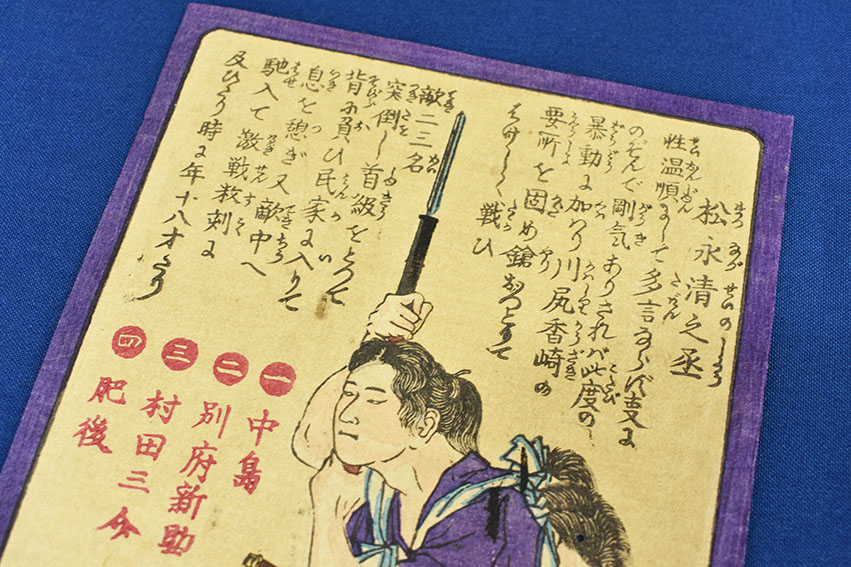 松永清之丞
性温順にして多言ならず変に
のぞんで剛気ありされバ此度の
暴動に加はり川尻香崎の
要所を固め鎗おつとつて
はげしく戦ひ
敵二三名
突倒し首級をとつて
背に負ひ民家に入りて
息を憩ぎ又敵中へ
馳入て激戦救刺に
及びたり時に年十八才なり
一 中島
二 別府新助
三 村田三介
四 肥後